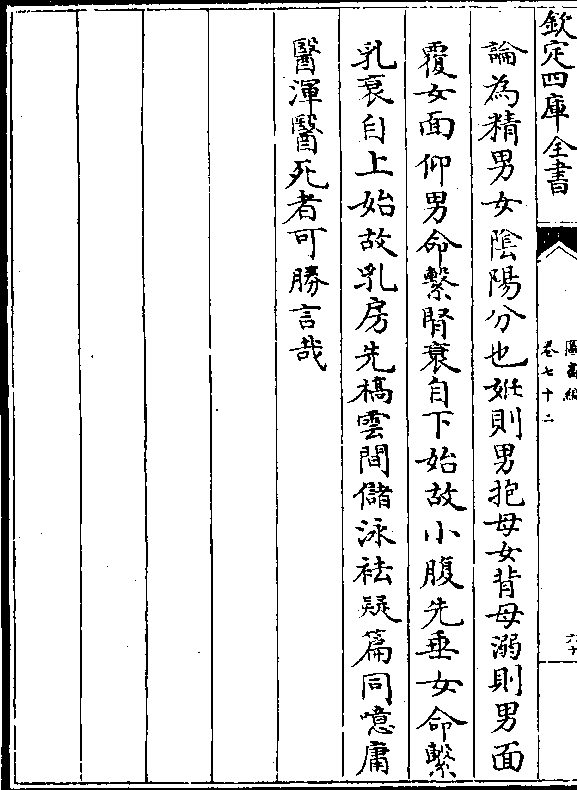 欽定四庫全書
圖書編
卷七十二
六十
論為精男女陰陽分也姙則男抱母女背母溺則男面
覆女面仰男命繫腎衰自下始故小腹先垂女命繫
乳衰自上始故乳房先槁雲間儲泳袪疑篇同噫庸
醫渾醫死者可勝言哉